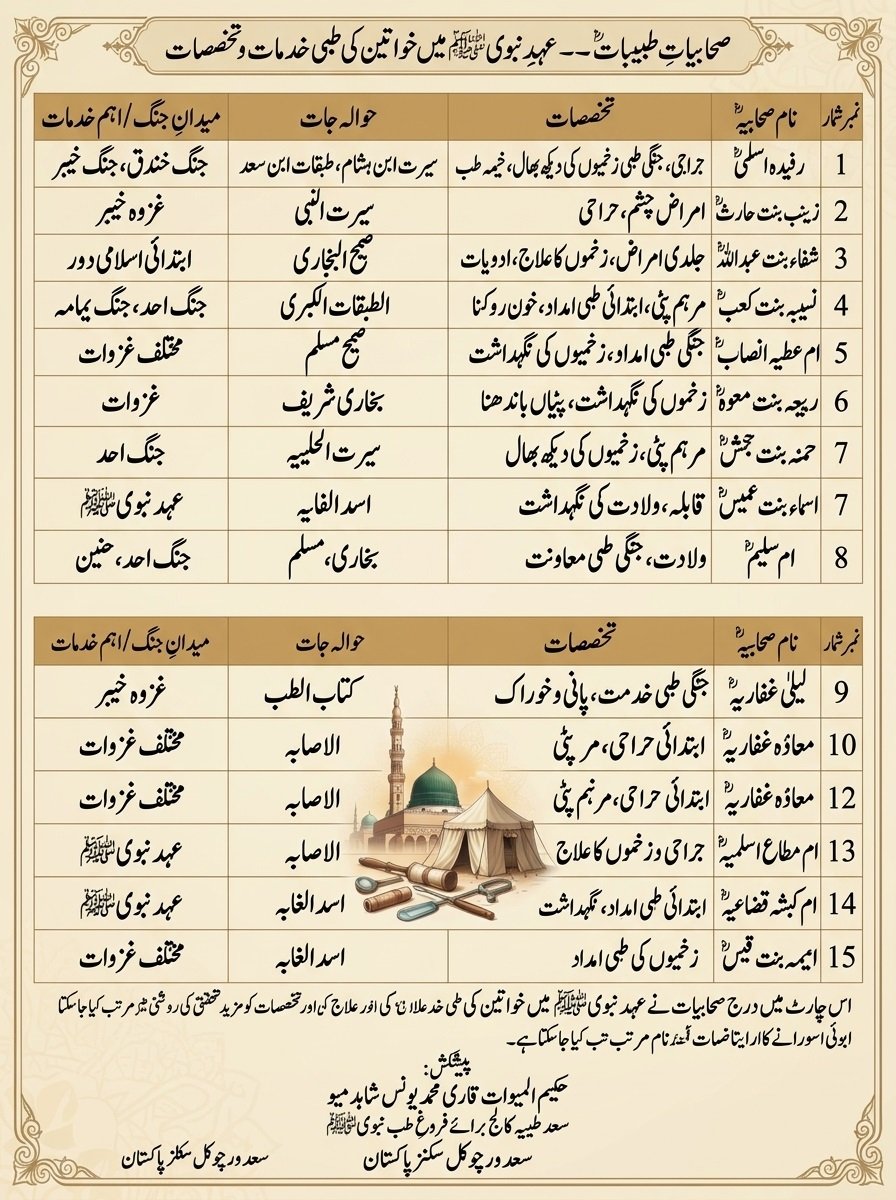 صحابیاتِ طبیبات ؓ -- عہدِ نبوی ﷺ میں خواتین کی طبی خدمات و تخصصات
نمبر شمار نام صحابیہ ؓ تخصصات حوالہ جات میدانِ جنگ/اہم خدمات
1 رفیدہ اسلمی ؓ جراحی، جنگی طبی زخمیوں کی دیکھ بھال، خیمہ طب سیرت ابن ہشام، طبقات ابن سعد جنگ خندق، جنگ خیبر
2 زینب بنت حارث ؓ امراض چشم، حراحی سیرت النبی غزوہ خیبر
3 شفاء بنت عبداللہ ؓ جلدی امراض، زخموں کا علاج، ادویات صحیح البخاری ابتدائی اسلامی دور
4 نسیبہ بنت کعب ؓ مرہم پٹی، ابتدائی طبی امداد، خون روکنا الطبقات الکبری جنگ احد، جنگ یمامہ
5 ام عطیہ انصاب ؓ جنگی طبی امداد، زخمیوں کی نگہداشت صحیح مسلم مختلف غزوات
6 ربیعہ بنت معوہ ؓ زخموں کی نگہداشت، پٹیاں باندھنا بخاری شریف غزوات
7 حمنہ بنت جحش ؓ مرہم پٹی، زخمیوں کی دیکھ بھال سیرت الحلبیہ جنگ احد
7 اسماء بنت عمیس ؓ قابلہ، ولادت کی نگہداشت اسد الفابیہ عہد نبوی ﷺ
8 ام سلیم ؓ ولادت، جنگی طبی معاونت بخاری، مسلم جنگ احد، حنین
نمبر شمار نام صحابیہ ؓ تخصصات حوالہ جات میدانِ جنگ/اہم خدمات
9 لیلیٰ غفاریہ ؓ جنگی طبی خدمت، پانی و خوراک کتاب الطب غزوہ خیبر
10 معاذہ غفاریہ ؓ ابتدائی حراحی، مر پٹی الاصابہ مختلف غزوات
12 معاذہ غفاریہ ؓ ابتدائی حراحی، مرنہم پٹی الاصابہ مختلف غزوات
13 ام مطاع اسلمیہ ؓ جراحی وزخموں کا علاج الاصابہ عہد نبوی ﷺ
14 ام کبشہ قضاعیہ ؓ ابتدائی طبی امداد، نگہداشت اسد الغابہ عہد نبوی ﷺ
15 ایمہ بنت قیس ؓ زخمیوں کی طبی امداد اسد الغابہ مختلف غزوات
اس چارٹ میں درج صحابیات نے عہد نبوی ﷺ میں خواتین کی طبی کی اور علاج کی اور تخصصات کو مزید تحقیق کی روشنی میں مرتب کیا جا سکتا
نام مرتب تب کیا جا سکتا ہے۔
پیشکش:
حکیم المیوات قاری محمد یونس شاہد میو
سعد طبیہ کالج برائے فروغِ طب نبوی ﷺ
سعد ورچوکل سکنز پاکستان
سعد ورچوکل سکلز پاکستان